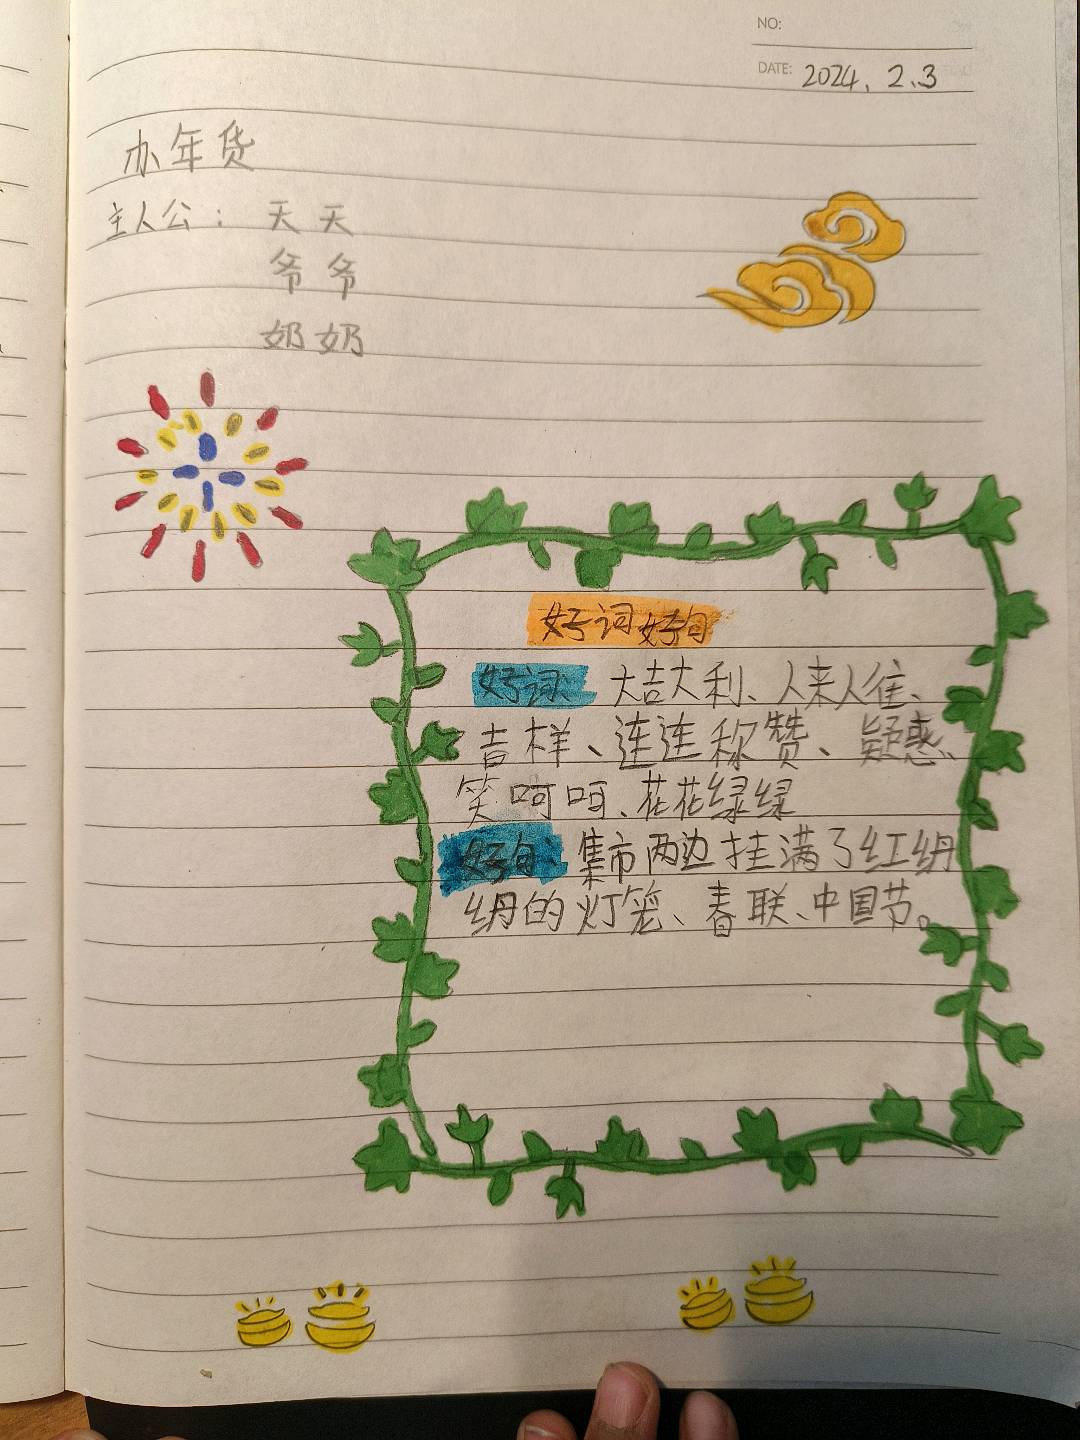 NO:
DATE: 2024.2.3
办年货
主人公：天天
爷爷
奶奶
好词好句
好词：大吉大利、人来人往、
吉样、连连称赞、疑惑、
笑呵呵、花花绿绿
好句：集市两边挂满了红纳
纳的灯笼、春联、中国节。